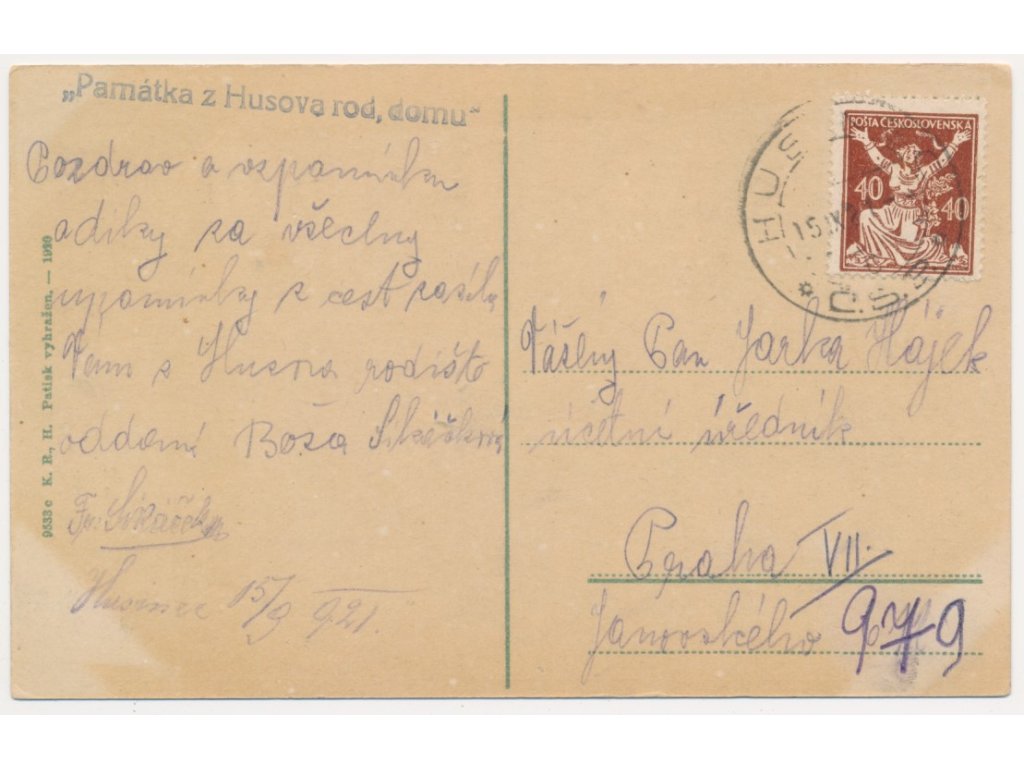 „Památka z Husova rod, domu“
Pozdrav a vzpomínku
a díky za všechny
upomínky z cest zasílá
Vám z Husova rodiště
oddaní Boža Sikáčková
Fr. Sikáček
Husinec 15/9 921.
9533 c K. R., H. Patisk vyhražen. — 1920
POŠTA ČESKOSLOVENSKÁ
40 40
HUS
15.IX.2
*Č.S.
Vážený Pan Jarka Hájek
účetní úředník
Praha VII.
Janovského 979